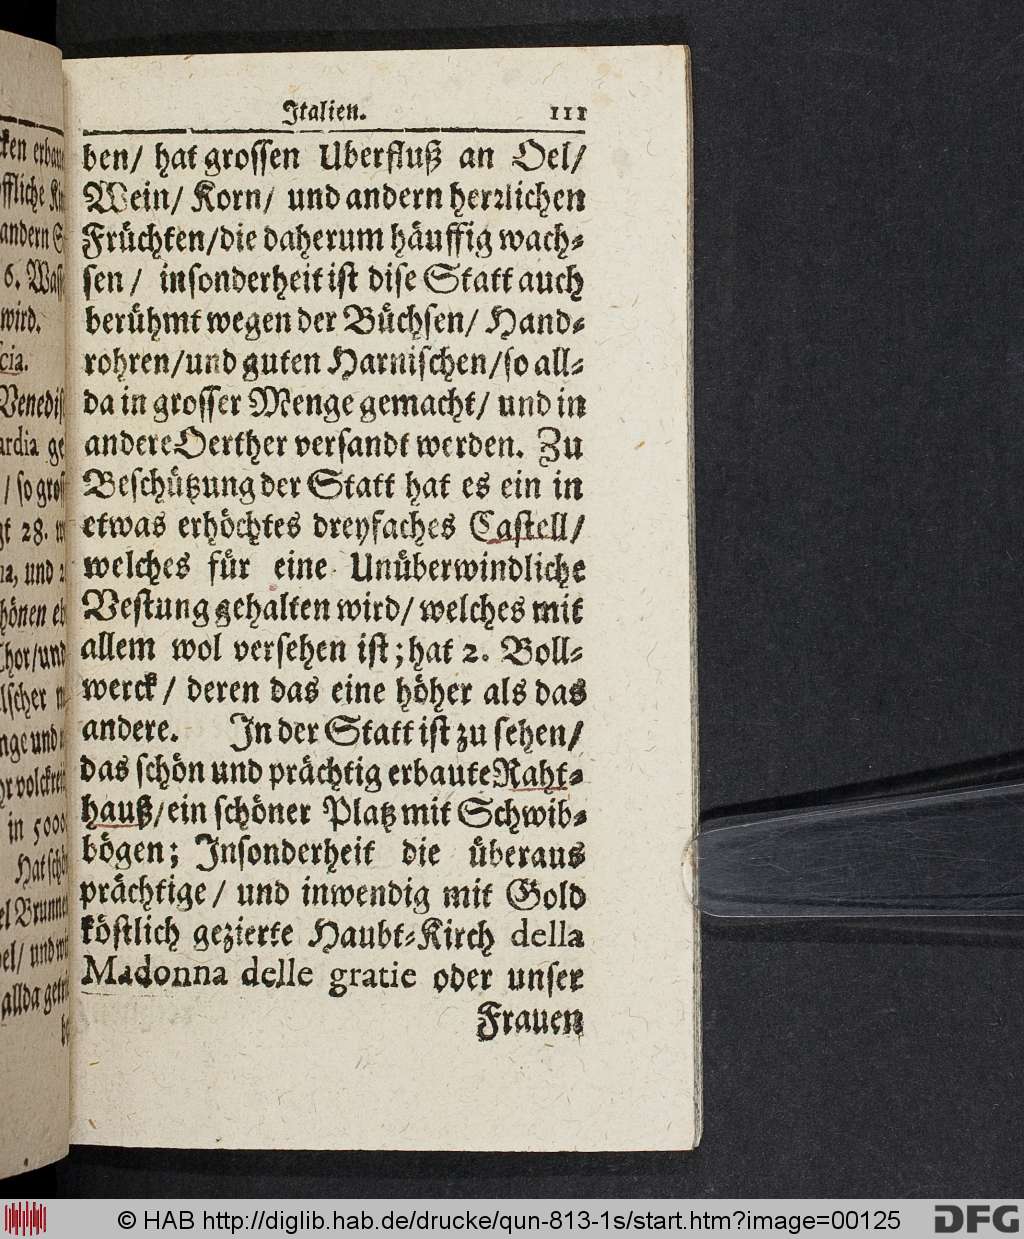 Italien. 111
ben/ hat grossen Uberfluß an Oel/
Wein/ Korn/ und andern herꝛlichen
Früchten/die daherum häuffig wach⸗
sen / insonderheit ist dise Statt auch
berühmt wegen der Büchsen/ Hand⸗
rohren/und guten Harnischen/so all⸗
da in grosser Menge gemacht/ und in
andere Oerther versandt werden. Zu
Beschützung der Statt hat es ein in
etwas erhöchtes dreyfaches Castell/
welches für eine Unüberwindliche
Vestung gehalten wird/ welches mit
allem wol versehen ist; hat 2. Boll⸗
werck/ deren das eine höher als das
andere. In der Statt ist zu sehen/
das schön und prächtig erbaute Raht⸗
hauß/ein schöner Platz mit Schwib⸗
bögen; Insonderheit die überaus
prächtige/ und inwendig mit Gold
köstlich gezierte Haubt⸗Kirch della
Madonna delle gratie oder unser
Frauen
6. 
wird.
cia.
ardia ge
/ so gros
28.
und
/und
in 5000
Brunne
allda
© HAB http://diglib.hab.de/drucke/qun-813-1s/start.htm?image=00125
DFG